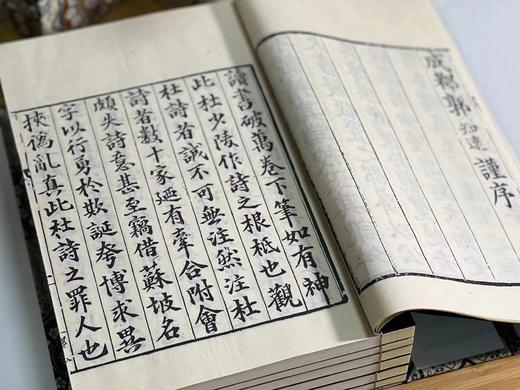 成都郭知達謹序
讀書破萬卷下筆如有神
此杜少陵作詩之根柢也觀
杜詩者誠不可無注然注杜
詩者數十家廼有牽合附會
頗失詩意甚至竊借蘇坡名
字以行勇於欺誕夸博求異
挾偽亂真此杜詩之罪人也